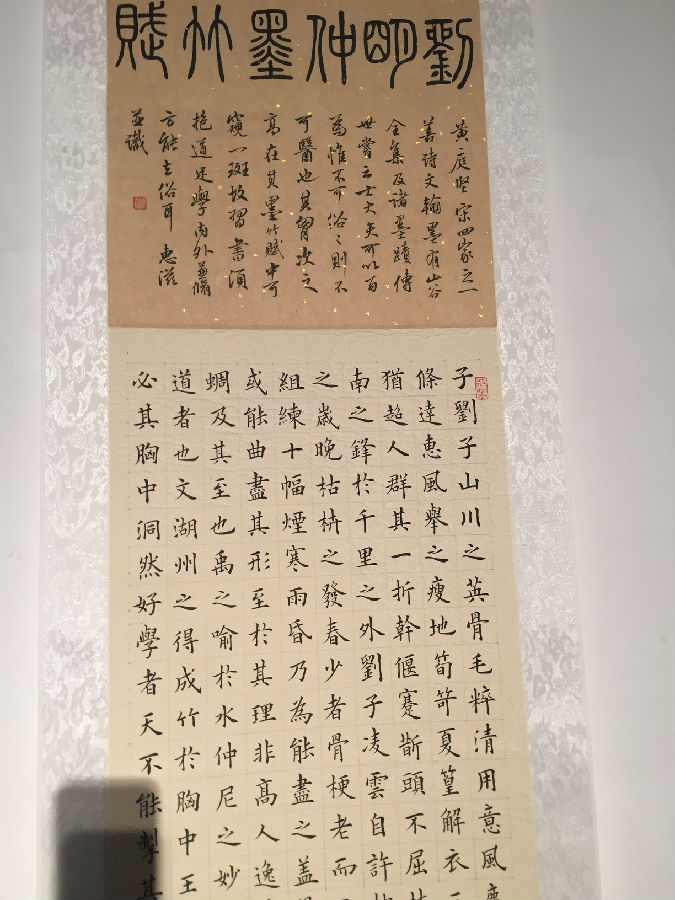 劉明仲墨竹賦
黃庭堅宋四家之一
善詩文翰墨有山谷
全集及諸墨蹟傳
世嘗云士大夫可以百
為惟不可俗〻則不
可醫也其胷次之
高在其墨竹賦中可
窺一斑故習書須
抱道足學內外兼脩
方能去俗耳 惠滋
並識
子劉子山川之英骨毛粹清用意風
條達惠風舉之瘦地筍笴夏篁解衣
猶超人群其一折幹偃蹇斮頭不屈
南之鋒於千里之外劉子凌雲自許
之歲晚枯枿之發春少者骨梗老而
組練十幅煙寒雨昏乃為能盡之蓋
或能曲盡其形至於其理非高人逸
蜩及其至也禹之喻於水仲尼之妙
道者也文湖州之得成竹於胸中王
必其胸中洞然好學者天不能掣其